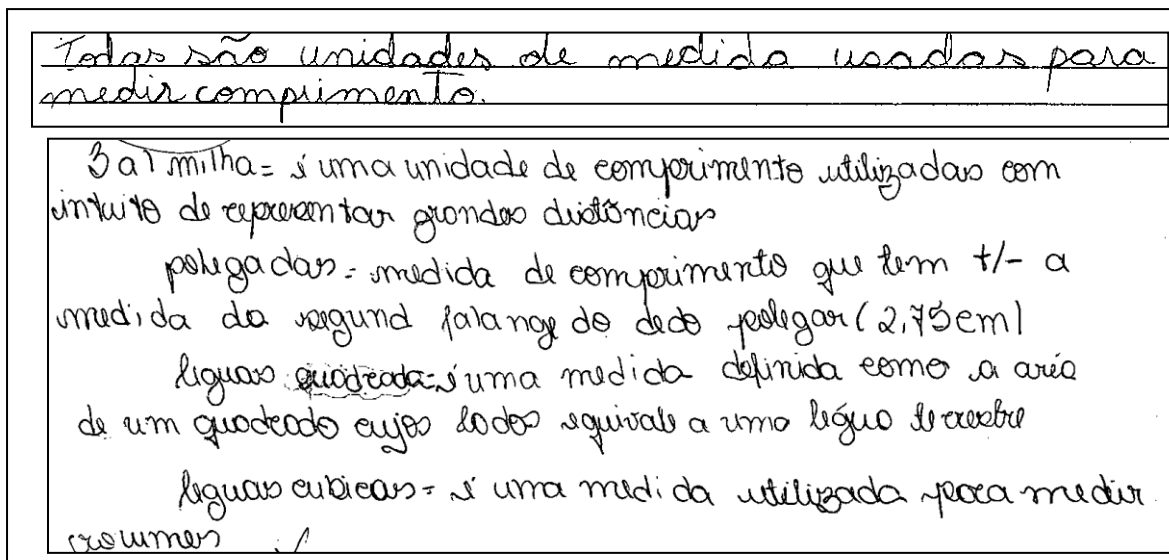 Todas são unidades de medida usadas para
medir comprimento.
3 a) milha = é uma unidade de comprimento utilizadas com
intuito de representar grandes distâncias
polegadas = medida de comprimento que tem +/- a
medida da segund falange do dedo polegar (2,75cm)
léguas quadrada = é uma medida definida como a aréa
de um quadrado cujos lados equivale a uma légua terrestre
léguas cubicas = é uma medida utilizada para medir
volumes